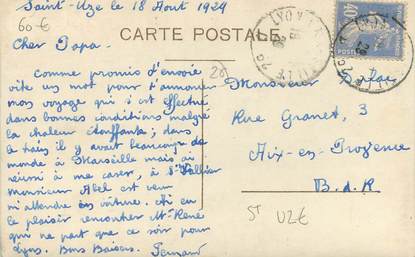 Saint-Uze le 18 Août 1929
60 €
Cher Papa.
CARTE POSTALE
Comme promis j'envoie
vite un mot pour t'annoncer
mon voyage qui s'est effectué
dans bonnes conditions malgré
la chaleur étouffante; dans
le train il y avait beaucoup de
monde à Marseille mais ai
réussi à me caser, à St Vallier
monsieur Abel est venu
m'attendre en voiture. Ai eu
le plaisir rencontrer Mr René
qui ne part que ce soir pour
Lyon. Bons Baisers. Fernand
Monsieur
Rue Granet, 3
Aix-en-Provence
B.d.R
ST UZE
40